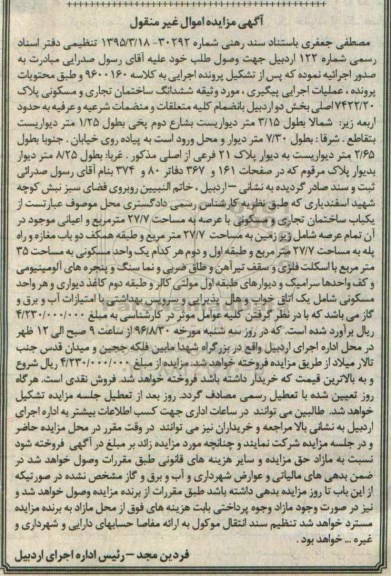 آگهی مزایده اموال غیر منقول
مصطفی جعفری باستناد سند رهنی شماره ۳۰۲۹۲-۱۳۹۵/۳/۱۸ تنظیمی دفتر اسناد
رسمی شماره ۱۲۲ اردبیل جهت وصول طلب خود علیه آقای رسول صدرایی مبادرت به
صدور اجرائیه نموده که پس از تشکیل پرونده اجرایی به کلاسه ۹۶۰۰۱۶۰ و طبق محتویات
پرونده ، عملیات اجرایی پیگیری ، مورد وثیقه ششدانگ ساختمان تجاری و مسکونی پلاک
۷۴۲۲/۲۰اصلی بخش دو اردبیل بانضمام کلیه متعلقات و منضمات شرعیه و عرفیه به حدود
اربعه زیر: شمالا بطول ۳/۱۵ متر دیواریست بشارع دوم یخی بطول ۱/۲۵ متر دیواریست
بتقاطع . شرقا : بطول ۷/۳۰ متر دیوار و محل ورود است به پیاده روی خیابان . جنوبا بطول
۲/۶۵ متر دیواریست به دیوار پلاک ۲۱ فرعی از اصلی مذکور . غربا: بطول ۸/۲۵ متر دیوار
بدیوار پلاک مرقوم که در صفحات ۱۶۱ و ۳۶۷ دفاتر ۸۰ و ۳۷۴ بنام آقای رسول صدرائی
ثبت و سند صادر گردیده به نشانی –اردبیل ، خاتم النبیین روبروی فضای سبز نبش کوچه
شهید اسفندیاری که طبق نظریه کارشناس رسمی دادگستری محل موصوف عبارتست از
یکباب ساختمان تجاری و مسکونی با عرصه به مساحت ۲۷/۷ مترمربع و اعیانی موجود در
آن تمام عرصه شامل زیر زمین به مساحت ۲۷/۷ متر مربع و طبقه همکف دو باب مغازه و راه
پله به مساحت ۲۷/۷ متر مربع و طبقه اول و دوم هر کدام یک واحد مسکونی به مساحت ۳۵
متر مربع با اسکلت فلزی و سقف تیرآهن و طاق ضربی و نما سنگ و پنجره های آلومینیومی
و کف واحدها سرامیک و دیوارهای طبقه اول مولتی کالر و طبقه دوم کاغذ دیواری و هر واحد
مسکونی شامل یک اتاق خواب و هال پذیرایی و سرویس بهداشتی با امتیازات آب و برق و
گاز می باشد که با در نظر گرفتن کلیه عوامل موثر در کارشناسی به مبلغ ۴/۲۳۰/۰۰۰/۰۰۰
ریال برآورد شده است. که در روز سه شنبه مورخه ۹۶/۸/۳۰ از ساعت ۹ صبح الی ۱۲ ظهر
در محل اداره اجرای اردبیل واقع در بزرگراه شهدا مابین فلکه ججین و میدان قدس جنب
تالار میلاد از طریق مزایده فروخته خواهد شد. مزایده از مبلغ ۴/۲۳۰/۰۰۰/۰۰۰ ریال شروع
و به بالاترین قیمت که خریدار داشته باشد فروخته خواهد شد. فروش نقدی است. هرگاه
روز تعیین شده با تعطیل رسمی مصادف گردد. روز بعد از تعطیل جلسه مزایده تشکیل
خواهد شد. طالبین می توانند در ساعات اداری جهت کسب اطلاعات بیشتر به اداره اجرای
اردبیل به نشانی بالا مراجعه و خریداران نیز می توانند در وقت مقرر در محل مزایده حاضر
و در جلسه مزایده شرکت نمایند و چنانچه مورد مزایده زائد بر مبلغ در آگهی فروخته شود
نسبت به مازاد حق مزایده و سایر هزینه های قانونی طبق مقررات وصول خواهد شد در
ضمن بدهی های مالیاتی و عوارض شهرداری و آب و برق و گاز مشخص نشده در صورتیکه
از این باب تا روز مزایده بدهی داشته باشد طبق مقررات از برنده مزایده وصول خواهد شد و
نیز در صورت وجود مازاد وجوه پرداختی بابت هزینه های فوق از محل مازاد به برنده مزایده
مسترد خواهد شد تنظیم سند انتقال موکول به ارائه مفاصا حسابهای دارایی و شهرداری و
غیره ... خواهد بود .
فردین مجد – رئیس اداره اجرای اردبیل